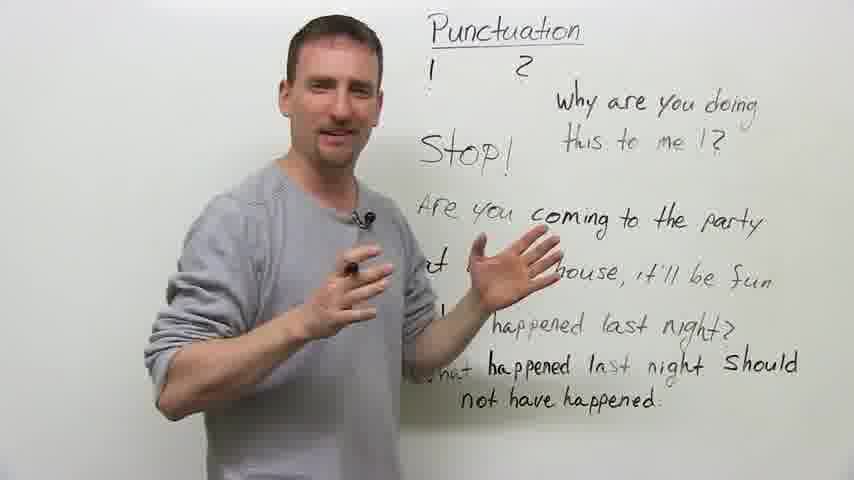 Punctuation
! ?
Why are you doing
this to me !?
Stop!
Are you coming to the party
at house, it'll be fun
happened last night?
What happened last night should
not have happened.